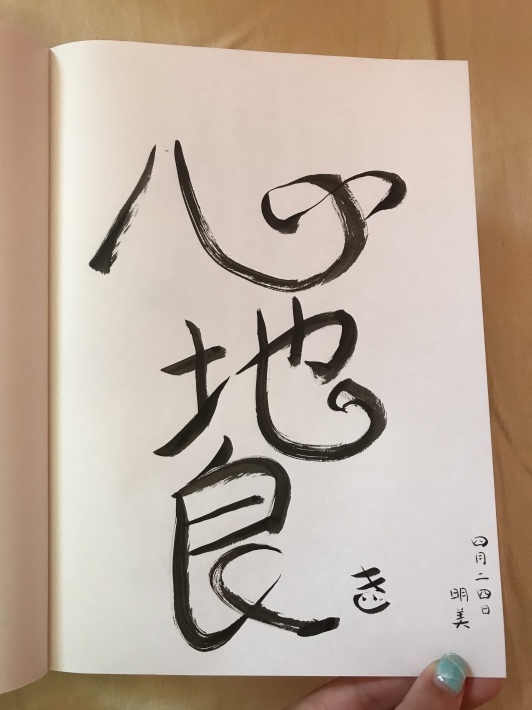 心地良き
四月二四日
明美